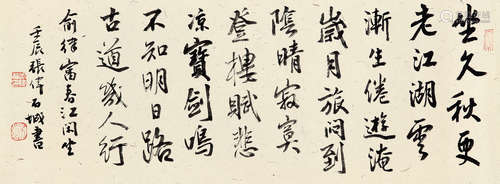 坐久秋更
老江湖雲
漸生倦遊淹
歲月旅問到
陰晴寂寞
登樓賦悲
凉寶劍鳴
不知明日路
古道幾人行
俞律富春江閑坐
壬辰張偉石城書